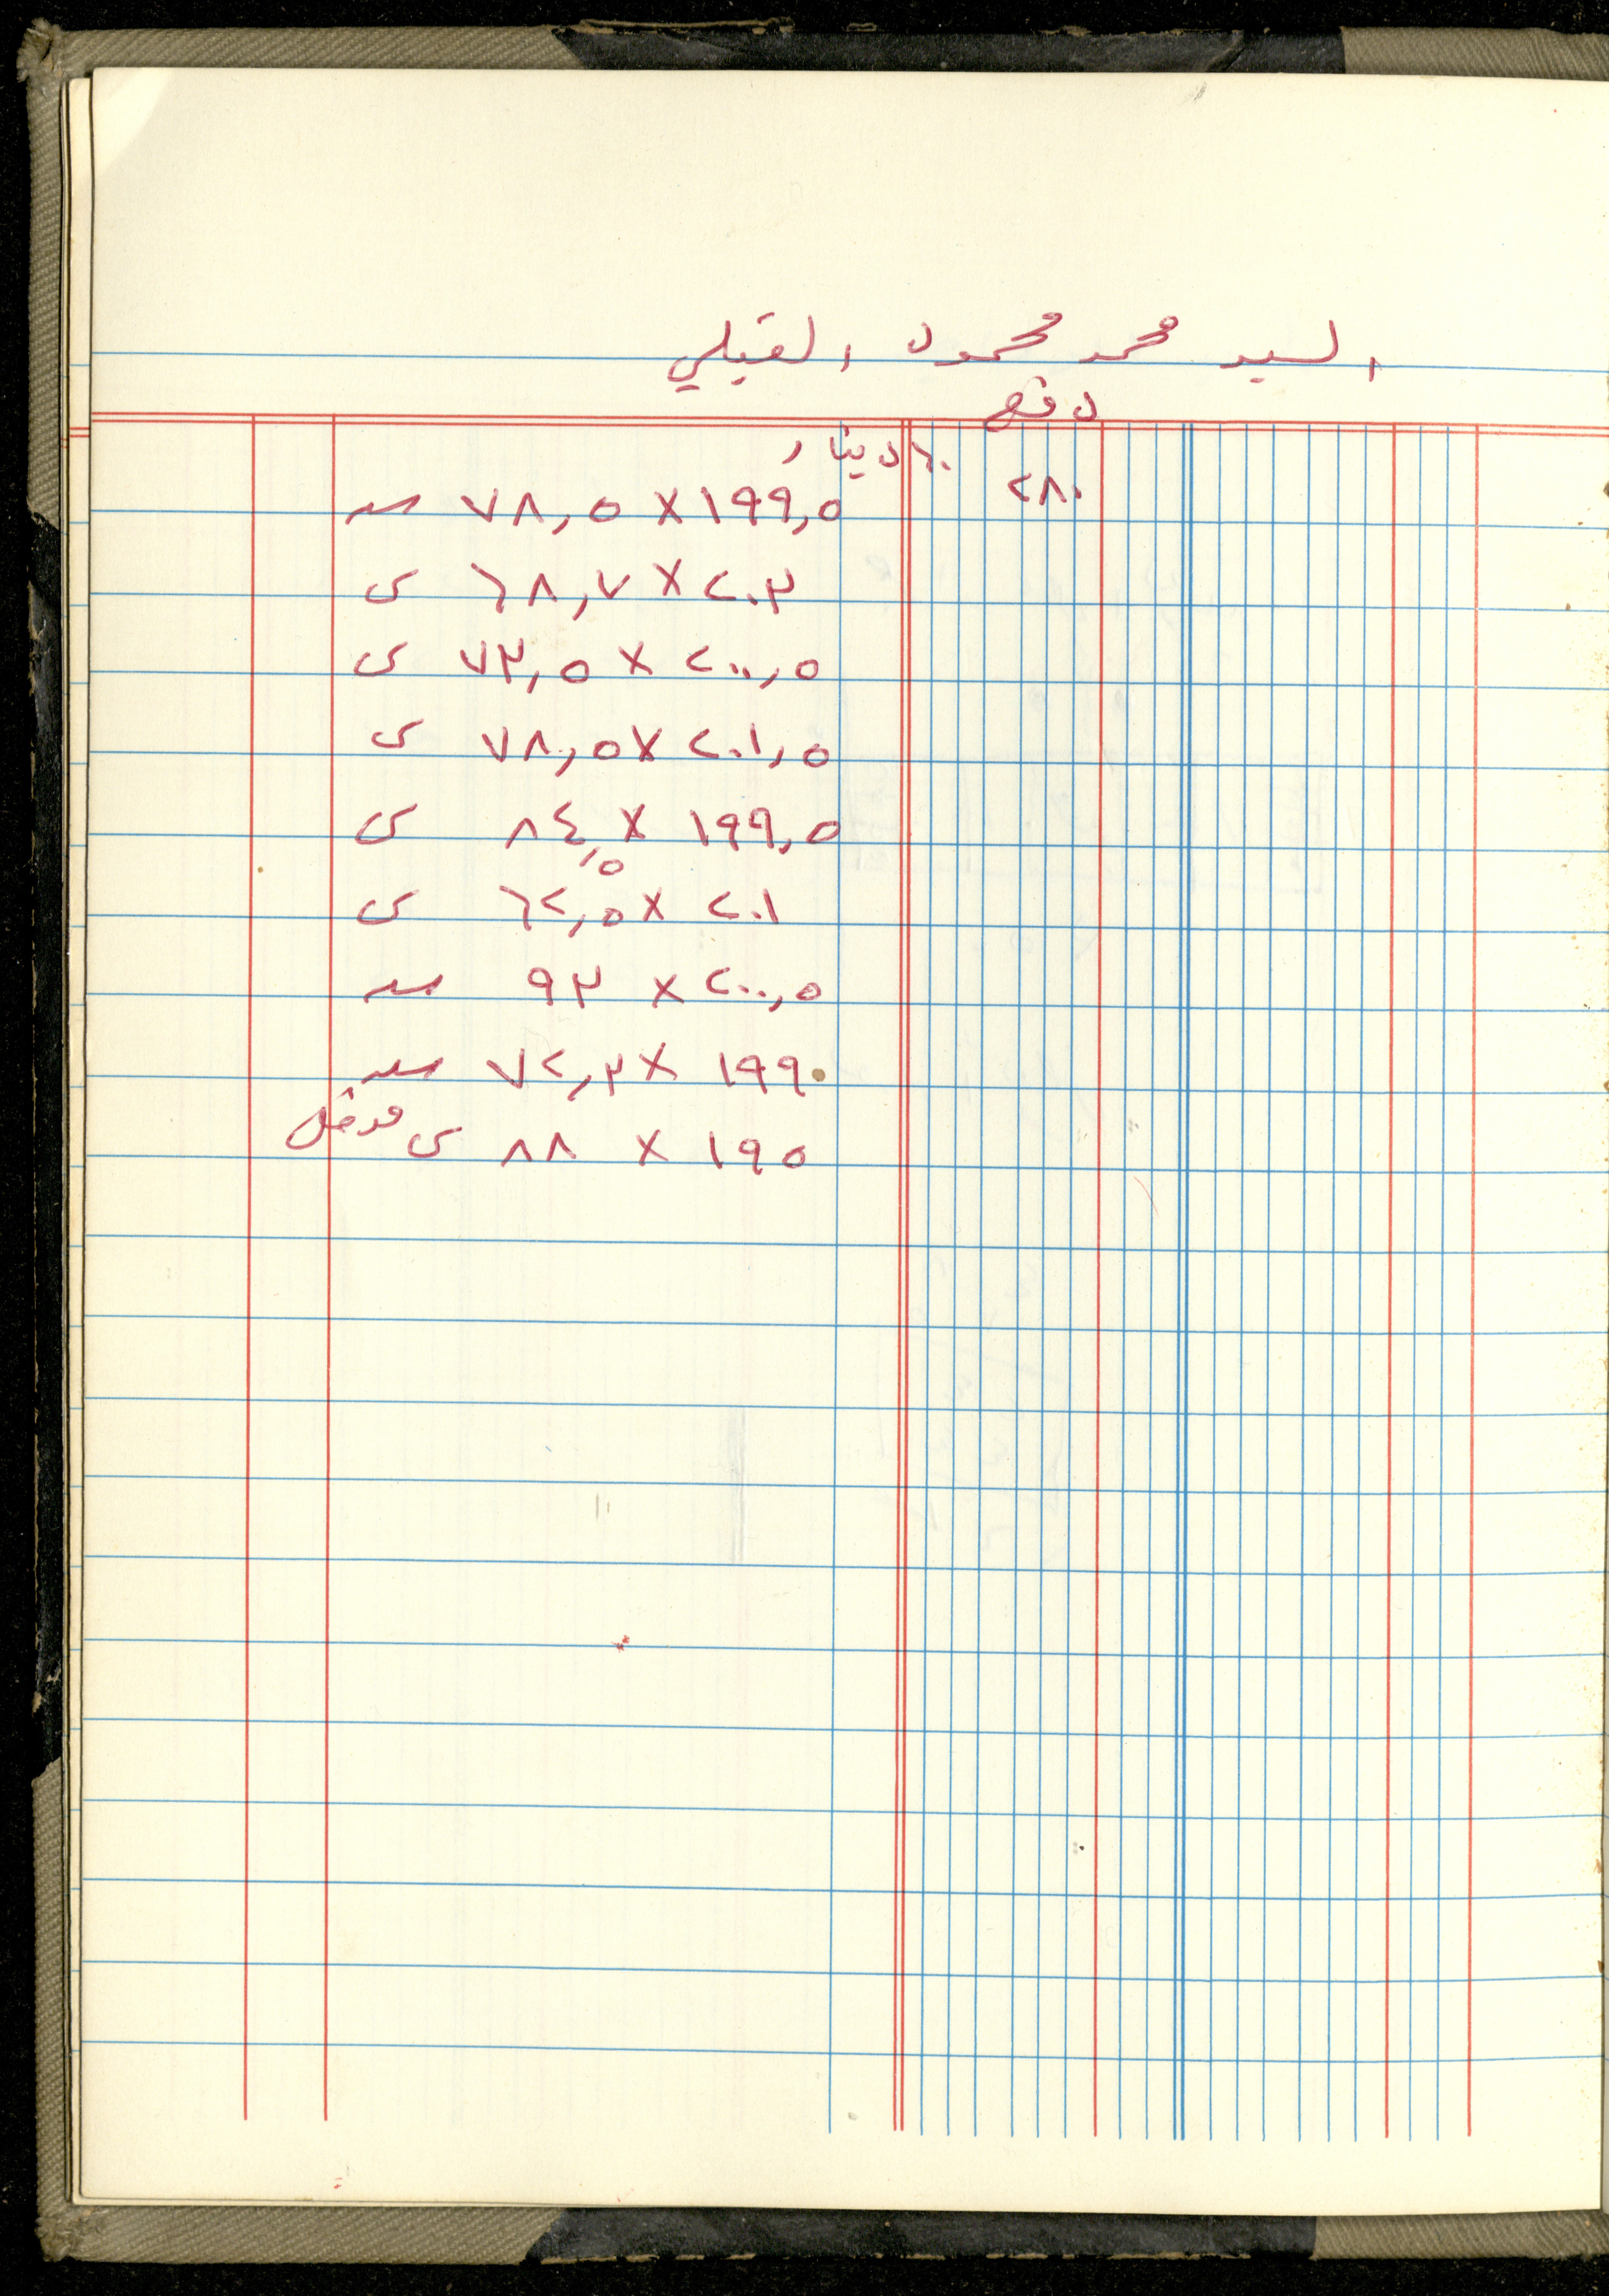 السيد محمد محمود القبلي
دفع
١٠ دينار
٢٨٠
١٩٩,٥ × ٧٨,٥ سد
٢٠٣ × ٦٨,٧ ى
٢٠٠,٥ × ٧٣,٥ ى
٢٠١,٥ × ٧٨,٥ ى
١٩٩,٥ × ٨٤,٥ ى
٢٠١ × ٦٢,٥ ى
٢٠٠,٥ × ٩٣ سد
١٩٩ × ٧٢,٣
١٩٥ × ٨٨ ى